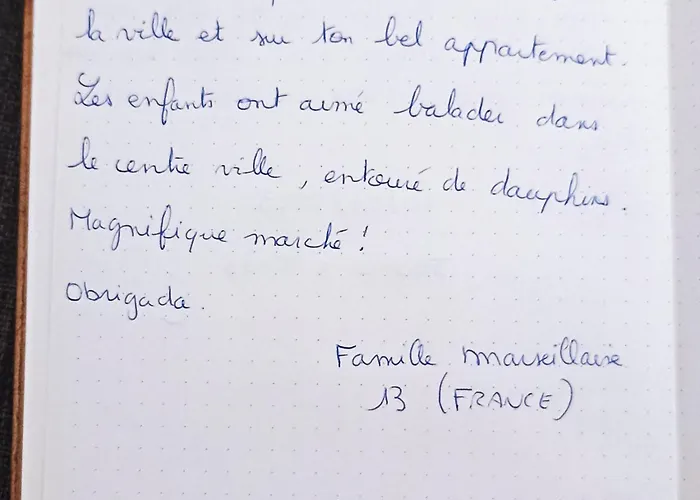 la ville et sur ton bel appartement.
Les enfants ont aimé balader dans
le centre ville, entouré de dauphins.
Magnifique marché !
Obrigada.
Famille marseillaise
13 (FRANCE)